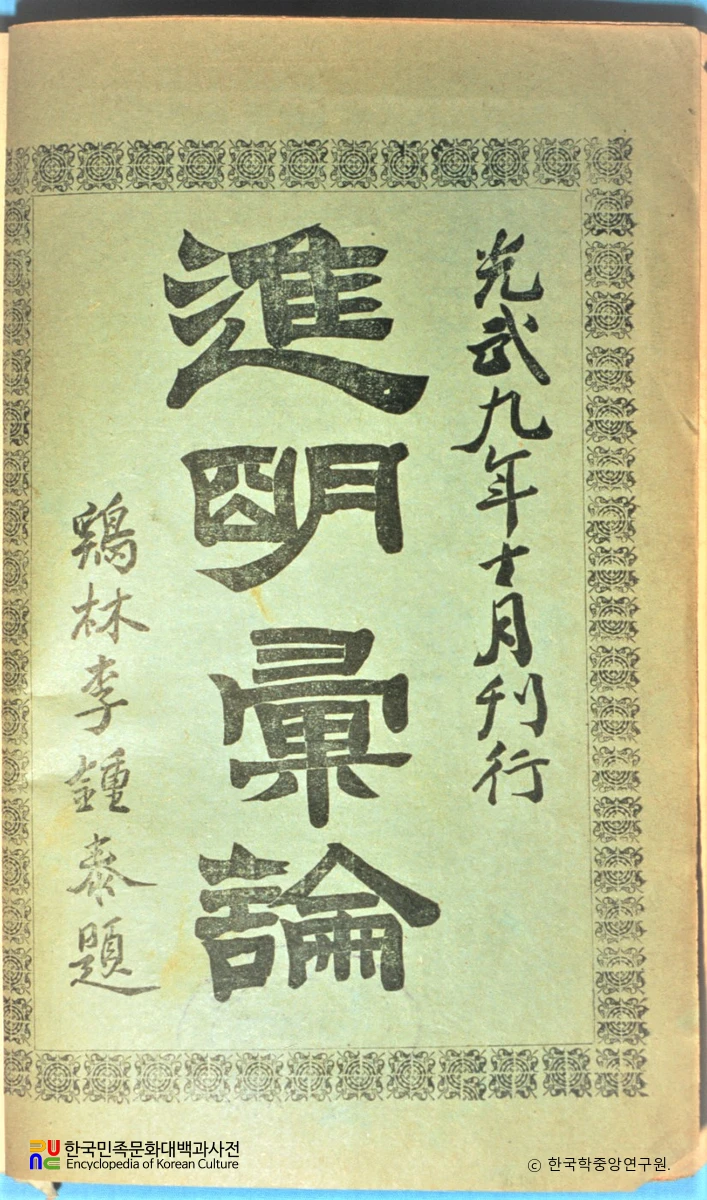 光武九年十月刊行
進明彙論
鷄林李鍾泰題
한국민족문화대백과사전
Encyclopedia of Korean Culture
© 한국학중앙연구원.